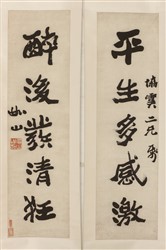 平生多感激
協寰二兄 屬
醉後發清狂